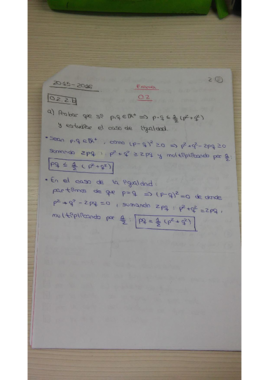 2015-2016
Examen
2 ①
02.2.21
0.2
a) Probar que si p,q ∈ ℝ⁺ ⇒ p·q ≤ ½ (p²+q²)
y estudiar el caso de igualdad.
• Sean p,q ∈ ℝ⁺, como (p-q)² ≥ 0 ⇒ p²+q²-2pq ≥ 0
sumando 2pq · p²+q² ≥ 2pq y multiplicando por ½
pq ≤ ½ (p²+q²)
• En el caso de la igualdad:
partimos de que p=q ⇒ (p-q)²=0 de donde
p²+q²-2pq=0, sumando 2pq · p²+q²=2pq ·
multiplicando por ½ · pq = ½ (p²+q²)